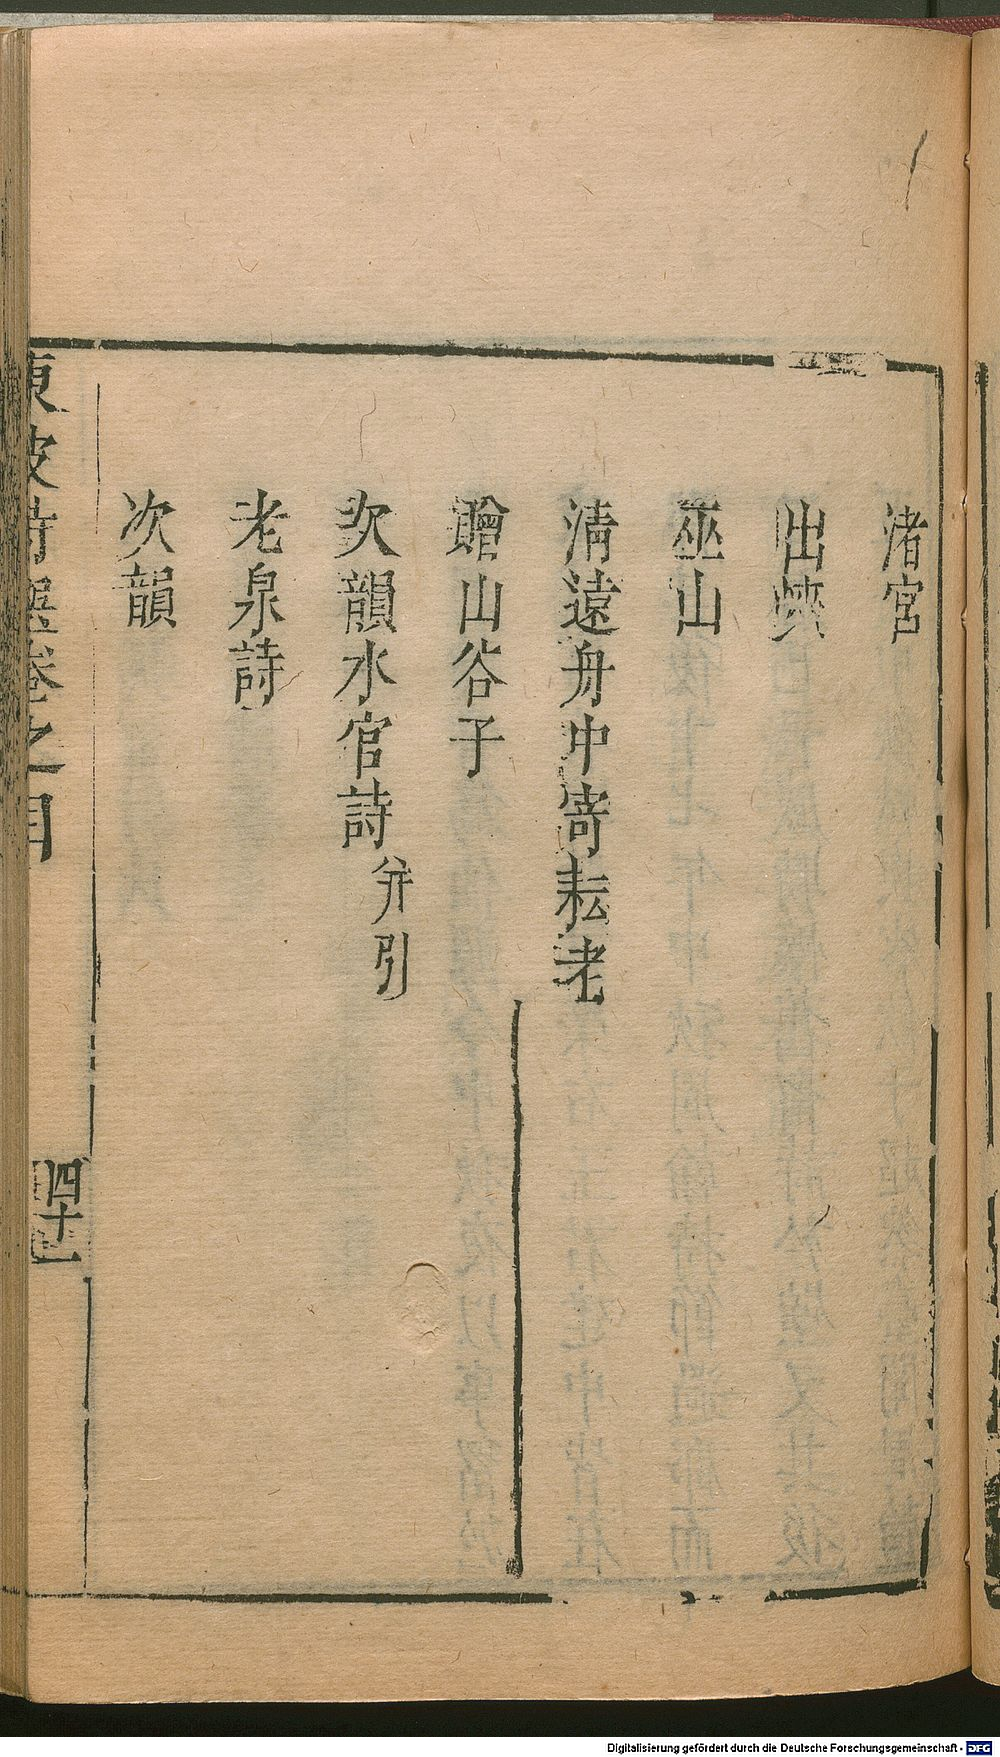 渚宮
出峽
巫山
清遠舟中寄耘老
贈山谷子
次韻水官詩 并引
老泉詩
次韻
東坡詩選卷之目
四十一
Digitalisierung gefördert durch die Deutsche Forschungsgemeinschaft - DFG